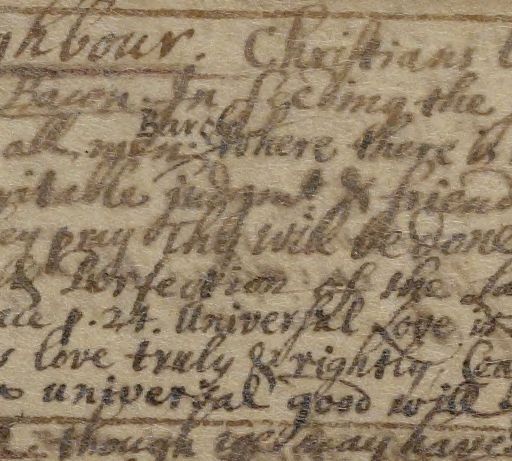 ghbour. Christians
Bacon. In seeking the
Barclay
all men. Where there is
ritable judgmt & friend
ey pray Thy will be done
& Perfection of the La
p. 24. Universal Love is
love truly & rightly,
universal good will
though we may have